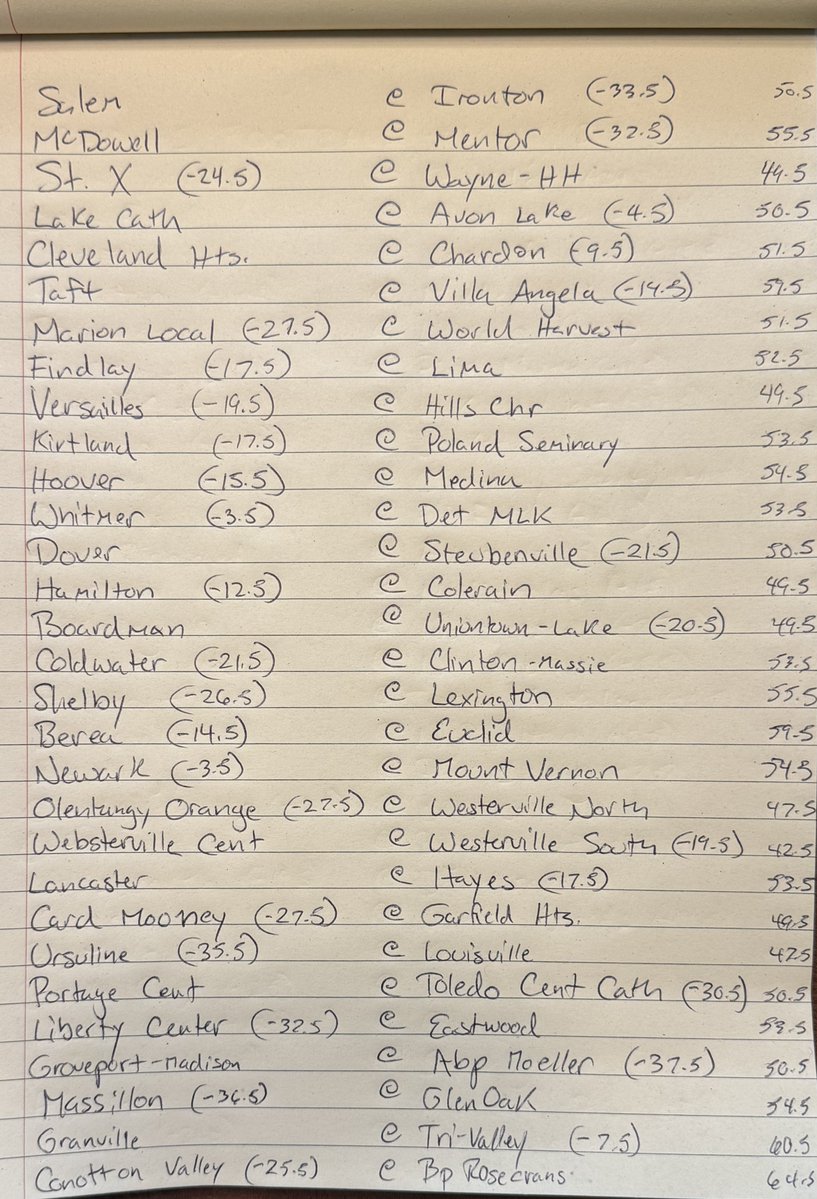 Salem @ Ironton (-33.5) 50.5
McDowell @ Mentor (-32.5) 55.5
St. X (-24.5) @ Wayne-HH 49.5
Lake Cath @ Avon Lake (-4.5) 50.5
Cleveland Hts. @ Chardon (-9.5) 51.5
Taft @ Villa Angela (-14.5) 59.5
Marion Local (-27.5) @ World Harvest 51.5
Findlay (-17.5) @ Lima 52.5
Versailles (-19.5) @ Hills Chr 49.5
Kirtland (-17.5) @ Poland Seminary 53.5
Hoover (-15.5) @ Medina 54.5
Whitmer (-3.5) @ Det MLK 53.5
Dover @ Steubenville (-21.5) 50.5
Hamilton (-12.5) @ Colerain 49.5
Boardman @ Uniontown-Lake (-20.5) 49.5
Coldwater (-21.5) @ Clinton-Massie 53.5
Shelby (-26.5) @ Lexington 55.5
Berea (-14.5) @ Euclid 59.5
Newark (-3.5) @ Mount Vernon 54.5
Olentangy Orange (-27.5) @ Westerville North 47.5
Websterville Cent @ Westerville South (-19.5) 42.5
Lancaster @ Hayes (-17.5) 53.5
Card Mooney (-27.5) @ Garfield Hts. 49.5
Ursuline (-35.5) @ Louisville 42.5
Portage Cent @ Toledo Cent Cath (-30.5) 50.5
Liberty Center (-32.5) @ Eastwood 53.5
Groveport-Madison @ Abp Moeller (-37.5) 50.5
Massillon (-36.5) @ GlenOak 54.5
Granville @ Tri-Valley (-7.5) 60.5
Conotton Valley (-25.5) @ Bp Rosecrans 64.5